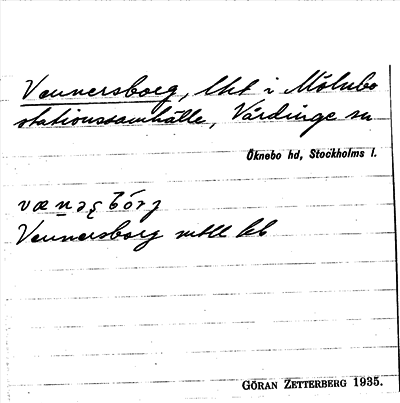 Vennersborg, lht i Mölnbo
stationssamhälle, Vårdinge sn
Öknebo hd, Stockholms l.
Vennersborg
GÖRAN ZETTERBERG 1935.